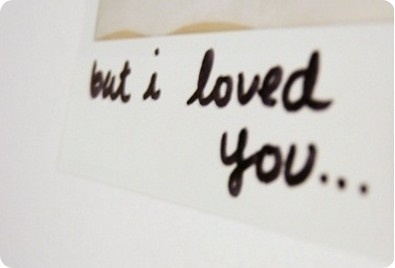 but i loved
you...